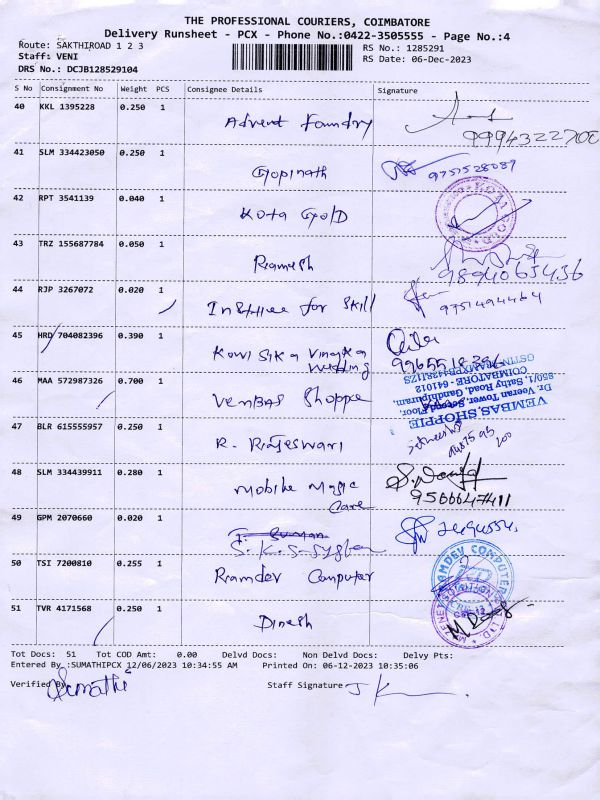 THE PROFESSIONAL COURIERS, COIMBATORE
Delivery Runsheet - PCX - Phone No.:0422-3505555 - Page No.:4
Route: SAKTHIROAD 1 2 3
RS No.: 1285291
Staff: VENI
RS Date: 06-Dec-2023
DRS No.: DCJB128529104
S No Consignment No Weight PCS Consignee Details Signature
40 KKL 1395228 0.250 1
Advent Foundry
9994322700
41 SLM 334423050 0.250 1
Gopinath
9751528089
42 RPT 3541139 0.040 1
Kota Gold
43 TRZ 155687784 0.050 1
Ramesh
9894065436
44 RJP 3267072 0.020 1
Institue for Skill
9751494464
45 HRD 704082396 0.390 1
Kowsika Vinayka
wedding
9965518396
46 MAA 572987326 0.700 1
Vembas Shoppe
VEMBAS SHOPPIE
Dr. Veeran Tower, Second Floor,
850/1, Sathy Road, Gandhipuram,
COIMBATORE - 641012
47 BLR 615555957 0.250 1
R. Rajeswari
48 SLM 334439911 0.280 1
Mobile Magic
Care
9566647411
49 GPM 2070660 0.020 1
S.K.S.
50 TSI 7200810 0.255 1
Ramdev Computer
RAMDEV COMPUTER
51 TVR 4171568 0.250 1
Dinesh
Tot Docs: 51 Tot COD Amt: 0.00 Delvd Docs: Non Delvd Docs: Delvy Pts:
Entered By :SUMATHIPCX 12/06/2023 10:34:55 AM Printed On: 06-12-2023 10:35:06
Verified By
Sumathi
Staff Signature